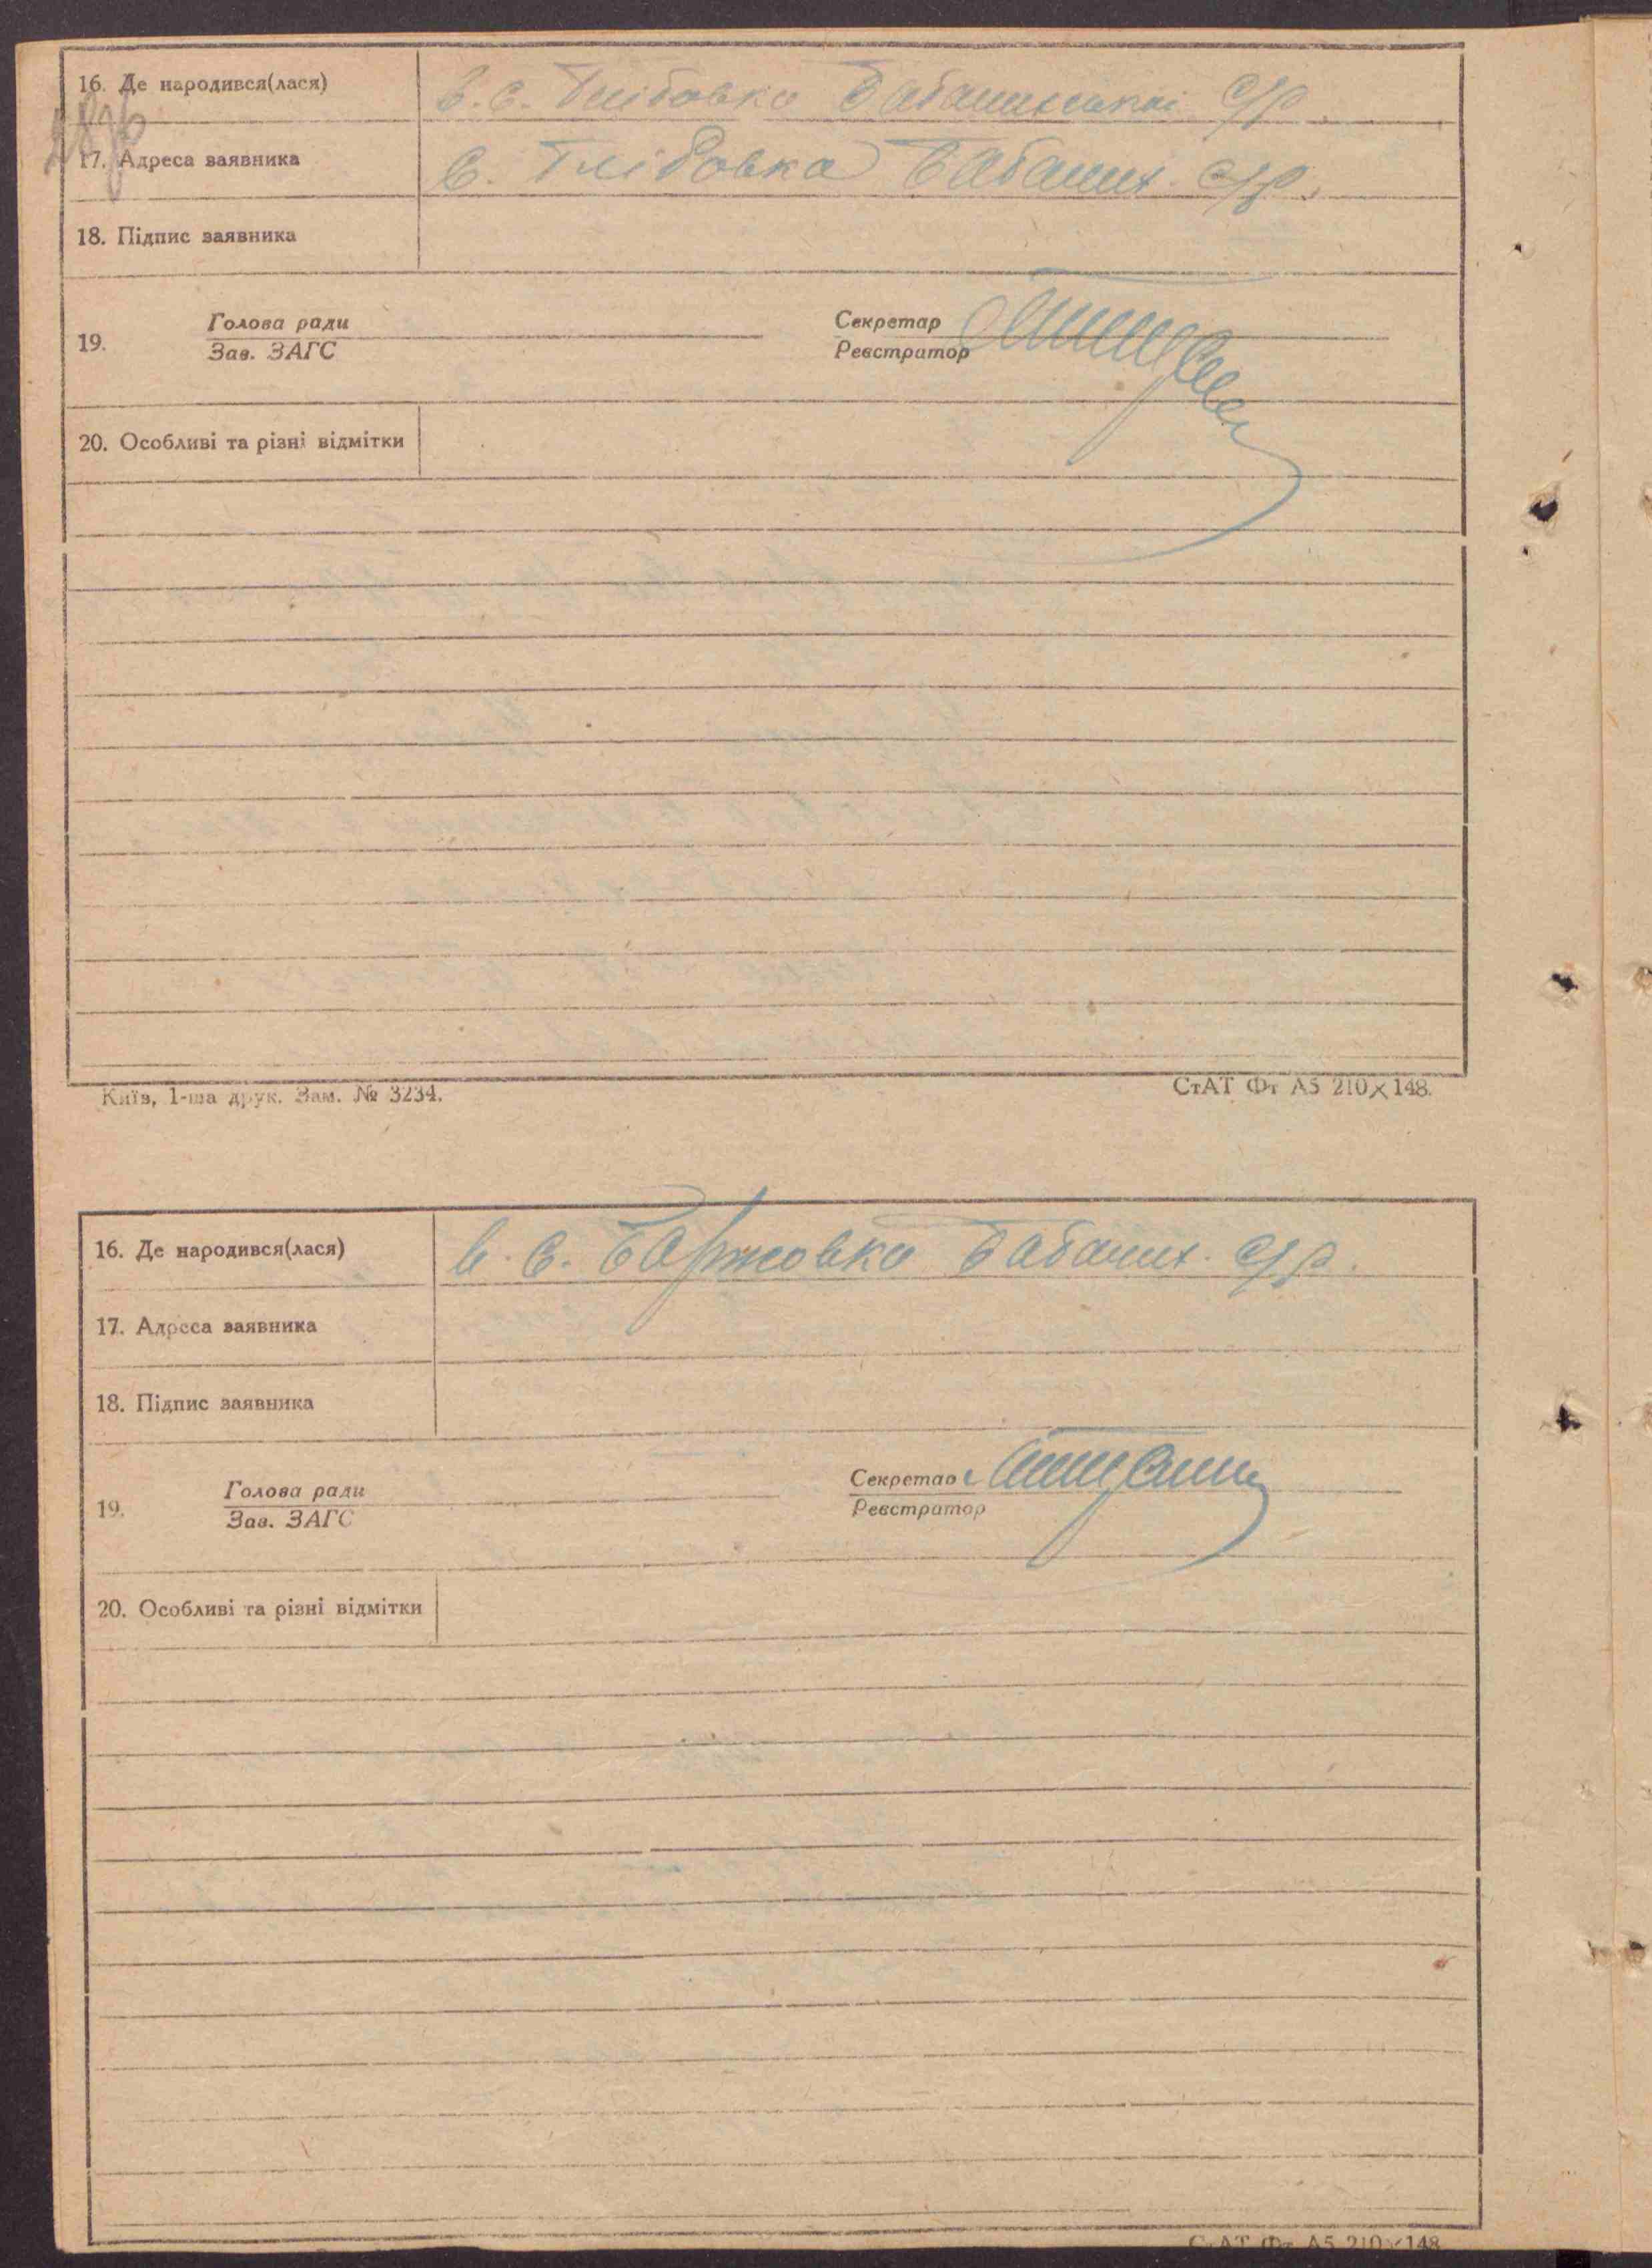 16. Де народився(лася) в. с. Глібовка Бабанинської с/р.
17. Адреса заявника с. Глібовка Бабанин. с/р.
18. Підпис заявника
19.
Голова ради
Зав. ЗАГС
Секретар
Реєстратор
20. Особливі та різні відмітки
Київ, 1-ша друк. Зам. № 3234.
СтАТ Фт А5 210×148.
16. Де народився(лася) в. с. с/р.
17. Адреса заявника
18. Підпис заявника
19.
Голова ради
Зав. ЗАГС
Секретар
Реєстратор
20. Особливі та різні відмітки
СтАТ Фт А5 210×148